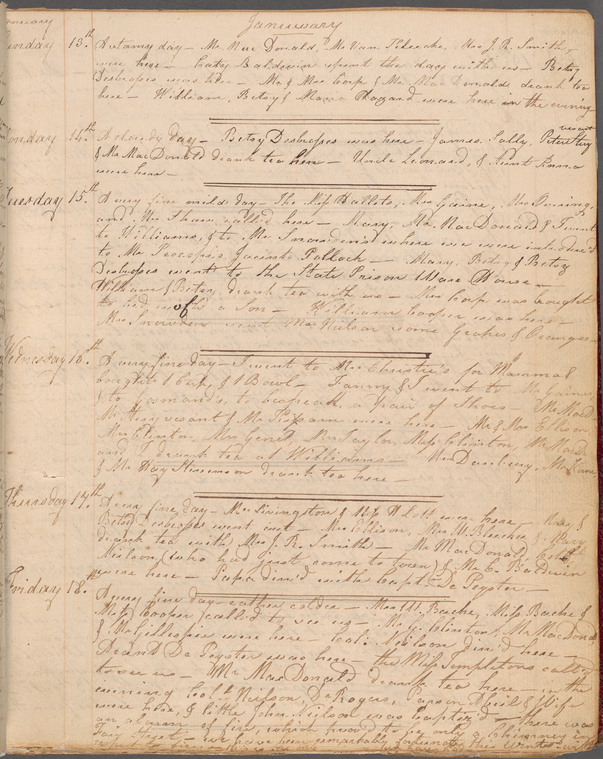 Januuary
Sunday 13th A stormy day - Mr. Mac Donald, Mr Van Bleecke, Mrs J. R. Smith,
were here - Caty Baldwin spent the day with us - Betsy
Desbrosses was here - Mr & Mrs Coop & Mr Mac Donald, drank tea
here - William, Betsy & Maria Haggard were here in the evening
Monday 14th A cloudy day - Betsy Desbrosses was here - James, Sally, Peter Stuy
vesant
& Mr MacDonald drank tea here - Uncle Leonard, & Aunt Anna
were here -
Tuesday 15th A very fine mild day - The Miss Halletts, Mrs Gaine, Mrs Onning,
and Mrs Shaw, call'd here - Mary, Mr MacDonald & I went
to Williams, & to Mr Snowdens where we were introduced
to Mr Pollock - Mary, Betsy & Betsy
Desbrosses went to the State Prison Ware House -
William & Betsy drank tea with us - Mrs Coop was brought
to bed of a Son - William Cooper was here -
Mrs Snowden sent Mrs Neilson some Grapes & Oranges -
Wednesday 16th A very fine day - I went to Mrs Christie's for Mamma
bought 1 Cup, & 1 Bowl - Fanny & I went to Mr Gaine
& to to bespeak a pair of Shoes - Mr MacD
Mr Stuyvesant & Mr were here - Mr & Mrs Ellison
Mrs Clinton, Mrs Genet, Mrs Taylor, Miss Clinton, Mr MacD
and I drank tea at Williams - Mrs Danbery, Mr
& Mr Hay Stevenson drank tea here -
Thursday 17th A very fine day - Mrs Livingston & Miss were here - Mary &
Betsy Desbrosses went out - Mrs Ellison, Mrs W. Bleecker & Mary
drank tea with Mrs J. R. Smith - Mr MacDonald,
Neilson (who had just come to town) & Mr C. Baldwin
were here - Papa din'd with Capt - De Peyster -
Friday 18th A very fine day - rather colder - Mrs W. Bache, Miss Bache &
Miss Cooper called to see us - Mr G. Clinton, Mr MacDonald
& Mr Gillespie were here - Neilson din'd here -
De Peyster was here - the Miss Templetons called
to see us - Mr MacDonald drank tea here - in the
evening Neilson, De Rogers, Parson & Wife
were here, & little John Neilson was baptis'd - there was
an alarm of fire, which prov'd to be only a Chimney in
Fair Street - we have been remarkably fortunate this Winter with